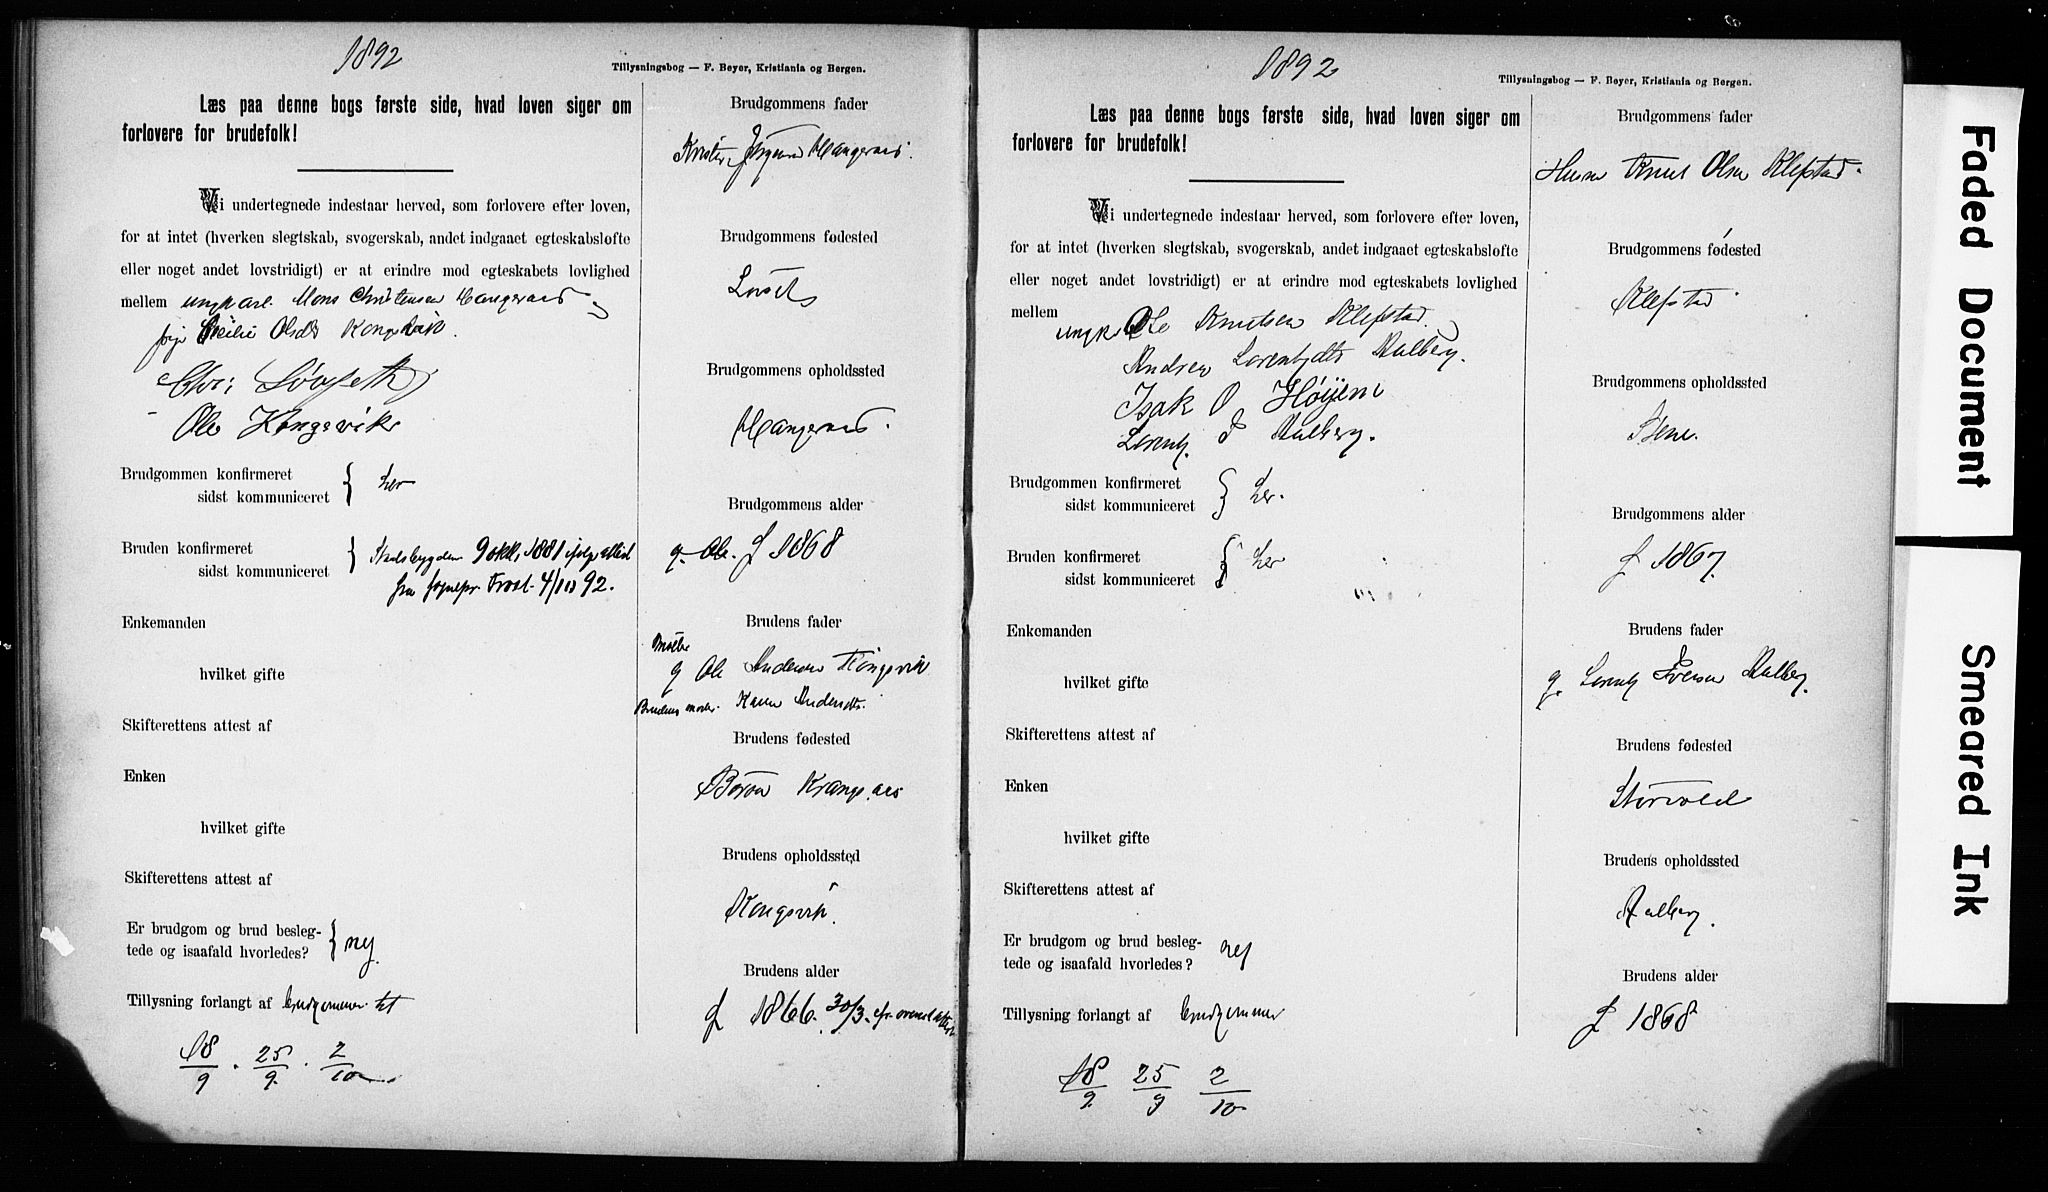 1892
Tillysningsbog — F. Beyer, Kristiania og Bergen.
Læs paa denne bogs første side, hvad loven siger om
forlovere for brudefolk!
Vi undertegnede indestaar herved, som forlovere efter loven,
for at intet (hverken slegtskab, svogerskab, andet indgaaet egteskabsløfte
eller noget andet lovstridigt) er at erindre mod egteskabets lovlighed
mellem ungkarl Mons Christensen Hangeraas
pige Olsdtr Kongsvik.
Ole Kongsvik
Brudgommen konfirmeret
sidst kommuniceret } her
Bruden konfirmeret
sidst kommuniceret } Stadsbygden 9 okt. 1881 ifølge attest
fra sognepr. 4/10 92.
Enkemanden
hvilket gifte
Skifterettens attest af
Enken
hvilket gifte
Skifterettens attest af
Er brudgom og brud besleg-
tede og isaafald hvorledes? } nej
Tillysning forlangt af brudgommen
18/9 . 25/9 . 2/10
Brudgommens fader
Jørgensen Hangeraas.
Brudgommens fødested
Brudgommens opholdssted
Hangeraas.
Brudgommens alder
f 1868
Brudens fader
g Ole Andersen Kongsvik
Brudens moder. Karen Andersdtr.
Brudens fødested
Børsen
Brudens opholdssted
Kongsvik.
Brudens alder
f 1866. 30/3.
1892
Tillysningsbog — F. Beyer, Kristiania og Bergen.
Læs paa denne bogs første side, hvad loven siger om
forlovere for brudefolk!
Vi undertegnede indestaar herved, som forlovere efter loven,
for at intet (hverken slegtskab, svogerskab, andet indgaaet egteskabsløfte
eller noget andet lovstridigt) er at erindre mod egteskabets lovlighed
mellem
ungk Ole Knutsen Klefstad
Andrea Lorentsdtr Aalberg.
Isak O Høijem
Lorents I Aalberg.
Brudgommen konfirmeret
sidst kommuniceret } her.
Bruden konfirmeret
sidst kommuniceret } her
Enkemanden
hvilket gifte
Skifterettens attest af
Enken
hvilket gifte
Skifterettens attest af
Er brudgom og brud besleg-
tede og isaafald hvorledes? nej
Tillysning forlangt af brudgommen
18/9 25/9 2/10
Brudgommens fader
Husm Knut Olsen Klefstad.
Brudgommens fødested
Klefstad
Brudgommens opholdssted
Brudgommens alder
f 1867.
Brudens fader
g. Lorents Iversen Aalberg.
Brudens fødested
Brudens opholdssted
Aalberg.
Brudens alder
f 1868
Faded Document
Smeared Ink